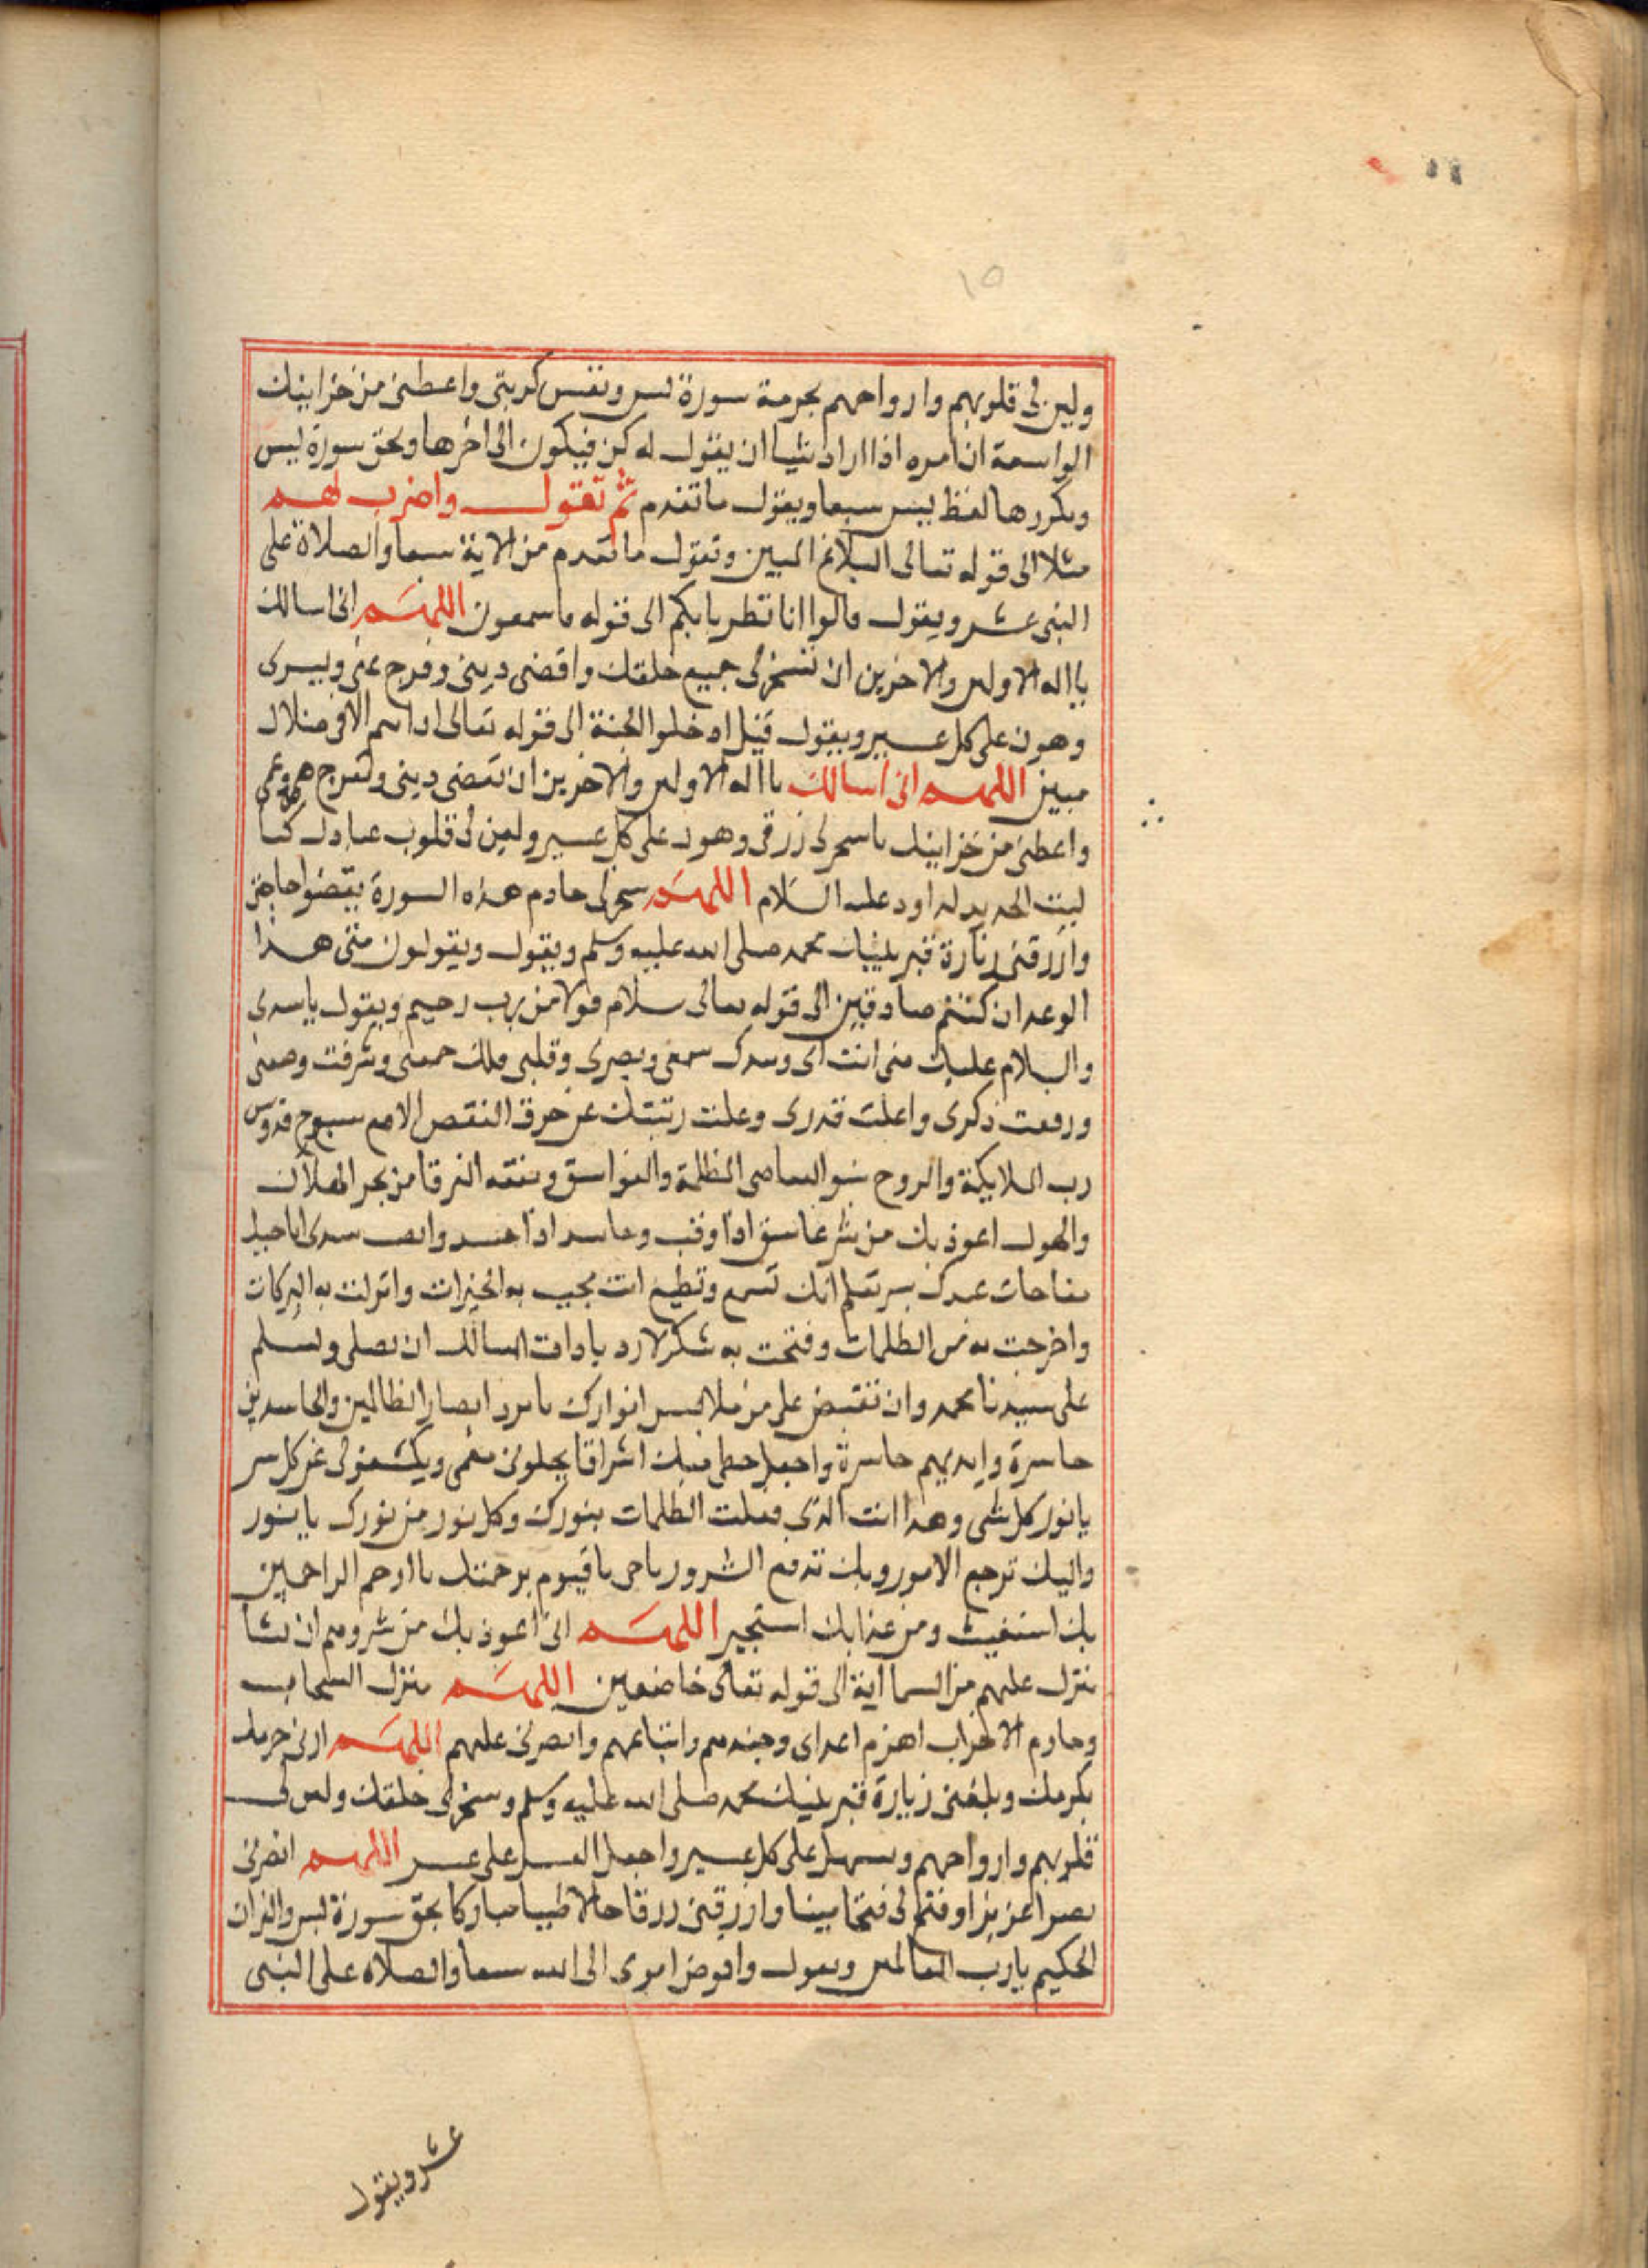 ١٥
ولين لى قلوبهم وارواحهم بحرمة سورة يس ونفس كربتى واعطنى من خزاينك
الواسعة ان امره اذا اراد شيا ان يقول له كن فيكون الى اخرها وبحق سورة يس
وتكررها لفظ يس سبعا ويقول ما تقدم ثم تقول واضرب لهم
مثلا الى قوله تعالى البلاغ المبين وتقول ما تقدم من الاية سبعا والصلاة على
النبى عشر ويقول قالوا انا تطيرنا بكم الى قوله فاسمعون اللهم انى اسالك
يا اله الاولين والاخرين ان تسخر لى جميع خلقك واقضى دينى وفرج عنى ويسرى
وهون على كل عسير ويقول قيل ادخلوا الجنة الى قوله تعالى ان انتم الا فى ضلال
مبين اللهم انى اسالك يا اله الاولين والاخرين ان تقضى دينى وتفرج همى وغمى
واعطنى من خزاينك ما سخر لى رزقى وهون على كل عسير ولين لى قلوب عبادك كما
لينت الحديد لداود عليه السلام اللهم سخر لى خادم هذه السورة يقضوا حاجتى
وارزقنى زيارة قبر نبيك محمد صلى الله عليه وسلم ويقول ويقولون متى هذا
الوعد ان كنتم صادقين الى قوله تعالى سلام قولا من رب رحيم ويقول يا سيدى
والسلام عليك منى انت سمعى وبصرى وقلبى وشرفت وضعنى
ورفعت ذكرى واعليت قدرى وعلت رتبتك عن النقص سبوح قدوس
رب الملايكة والروح الظلمة والغواسق من بحر الهلاك
والهول اعوذ بك من شر غاسق اذا وقب وحاسد اذا حسد
مناجات عبدك بسر تعلم انك تسمع وتطيع انت مجيب به الخيرات وانزلت به البركات
واخرجت به من الظلمات وفتحت به اسالك ان تصلى وتسلم
على سيدنا محمد وان تفيض على من ملابس انوارك ما يرد ابصار الظالمين والحاسدين
خاسرة وايديهم خاسرة واجعل حظى منك اشراقا يجلو لى ويكشف لى عن كل سر
يا نور كل شى وهذا انت الذى الظلمات بنورك وكل نور من نورك يا نور
واليك ترجع الامور وبك تدفع الشرور يا حى يا قيوم برحمتك يا ارحم الراحمين
بك استغيث ومن عذابك استجير اللهم انى اعوذ بك من شرورهم ان نشا
ننزل عليهم من السما اية الى قوله تعالى خاضعين اللهم منزل السحاب
وهازم الاحزاب اهزم اعداى وجندهم واتباعهم وانصرنى عليهم اللهم ارنى حرمك
بكرمك وبلغنى زيارة قبر نبيك محمد صلى الله عليه وسلم وسخر لى خلقك ولين لى
قلوبهم وارواحهم وسهل على كل عسير واجعل العسر على يسر اللهم انصرنى
نصرا عزيزا وفتح لى فتحا مبينا وارزقنى رزقا حلالا طيبا مباركا بحق سورة يس والقران
الحكيم يا رب العالمين ويقول وافوض امرى الى الله سبعا والصلاه على النبى
عشر ويقول